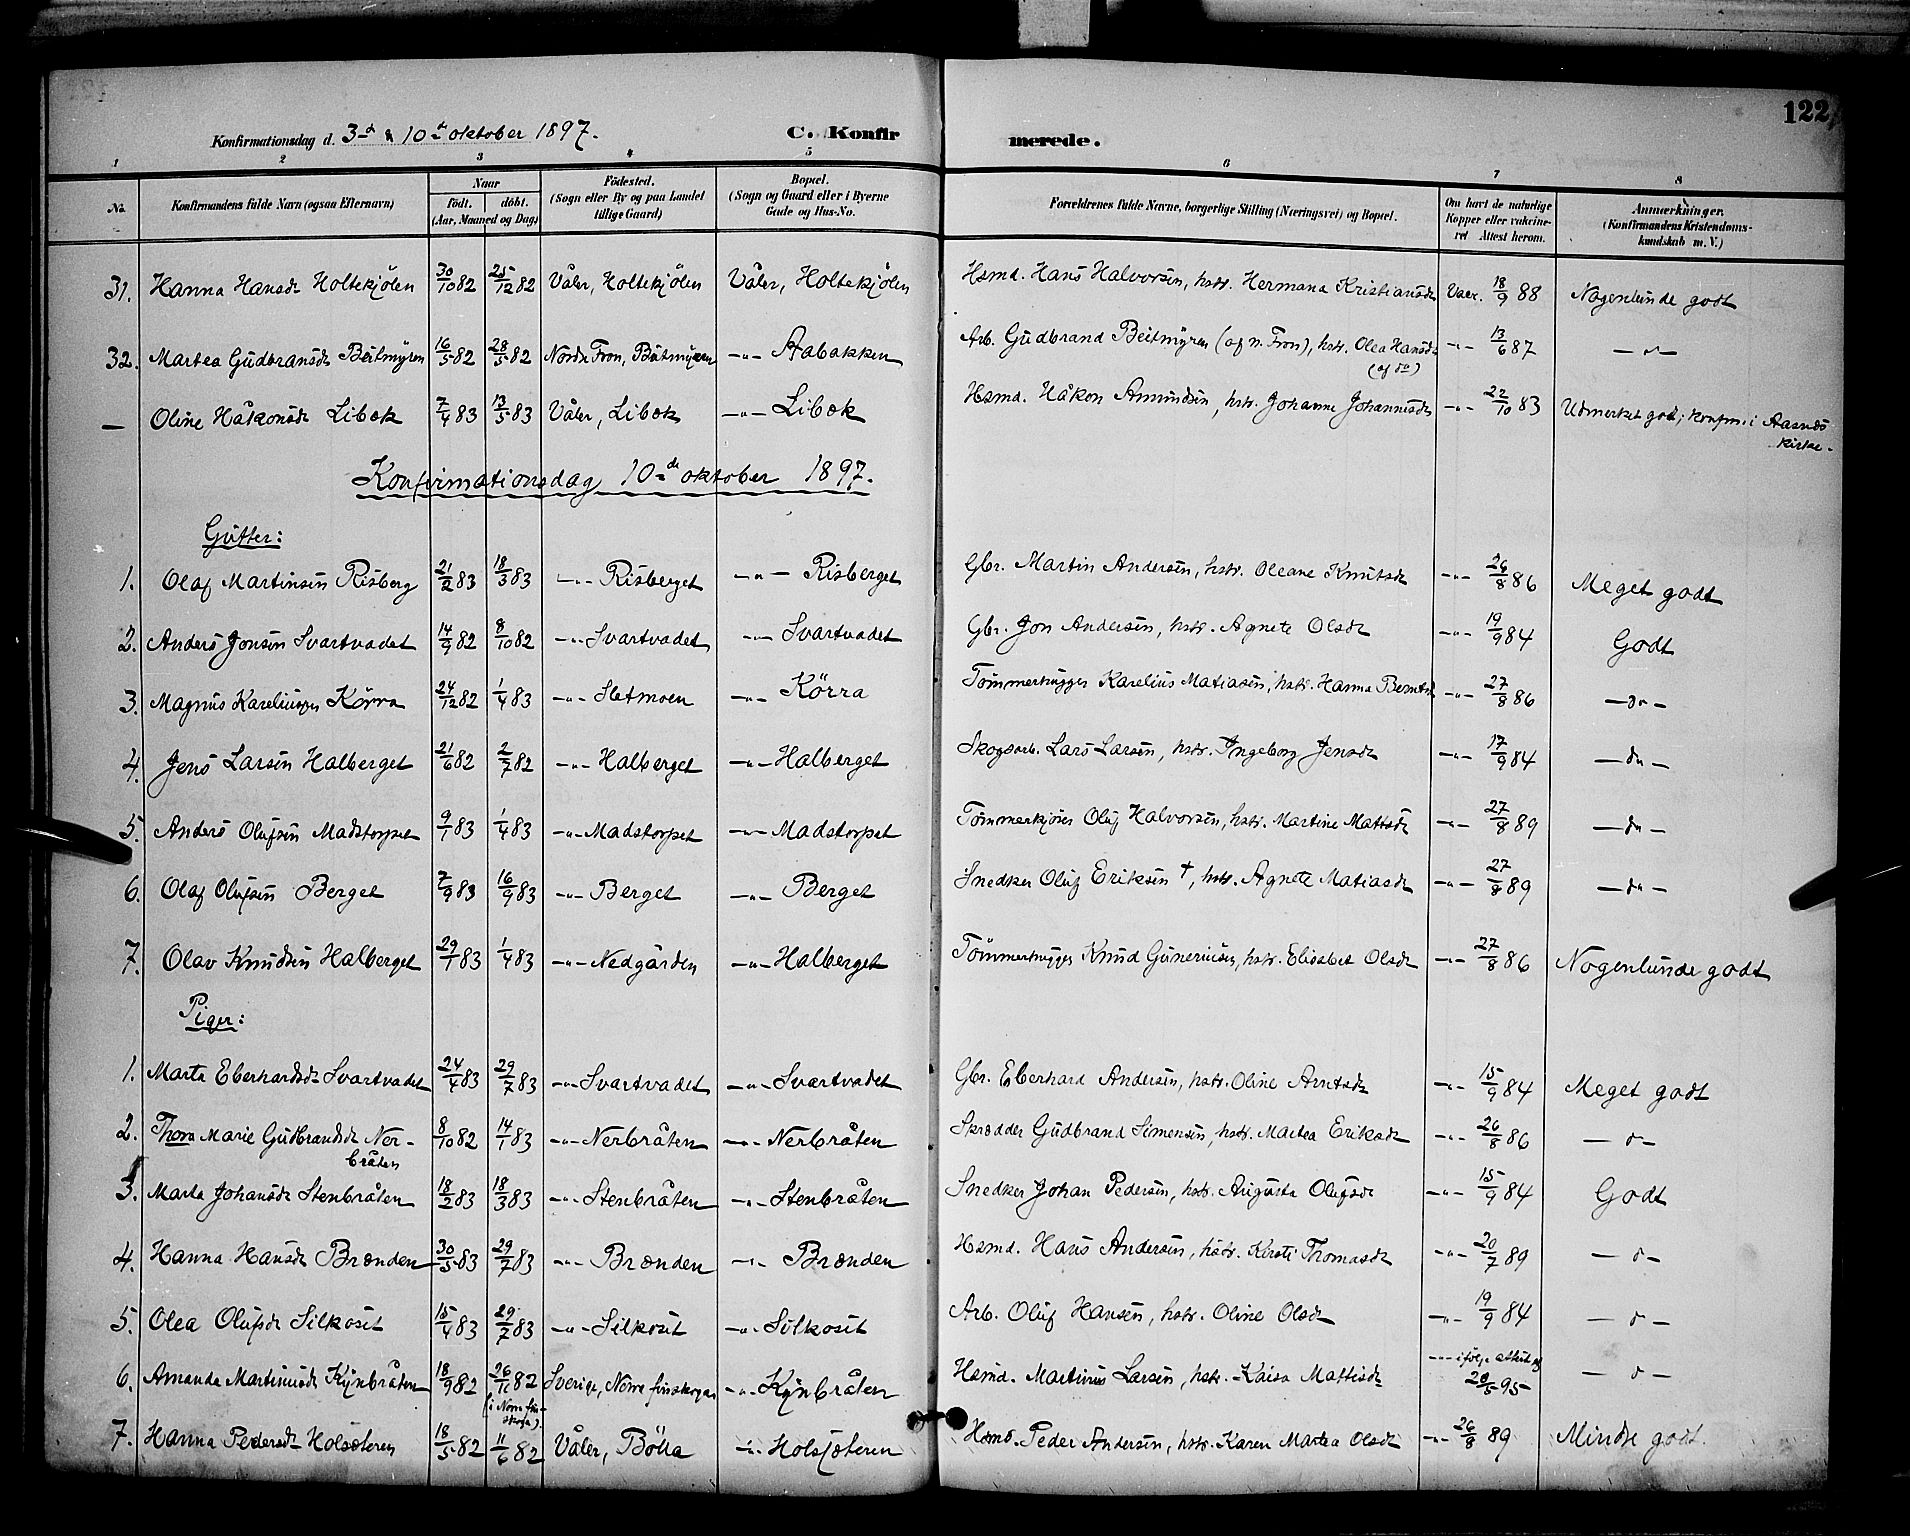 122
Konfirmationsdag d. 3de & 10de oktober 1897. C. Konfirmerede.
1 2 3 4 5 6 7 8
No. Konfirmandens fulde Navn (ogsaa Efternavn) Naar født. døbt. (Aar, Maaned og Dag) Fødested. (Sogn eller By og paa Landet tillige Gaard) Bopæl. (Sogn og Gaard eller i Byerne Gade og Hus-No. Forældrenes fulde Navne, borgerlige Stilling (Næringsvei) og Bopæl. Om havt de naturlige Kopper eller vakcineret Attest herom. Anmærkninger. (Konfirmandens Kristendomskundskab m. V.)
31. Hanna Hansdr Holtekjølen 30/10 82 25/12 82 Våler, Holtekjølen Våler, Holtekjølen Hsmd. Hans Halvorsen, hstr. Hermana Kristiansdr Vacc. 18/9 88 Nogenlunde godt
32. Martea Gudbransdr Beitmyren 16/5 82 28/5 82 Nordre Fron, Beitmyren -"- Aabakken Arb. Gudbrand Beitmyren (af n. Fron), hstr. Olea Hansdr (af do) -"- 13/6 87 -o-
— Oline Håkonsdr Libæk 7/4 83 13/5 83 Våler, Libæk -"- Libæk Hsmd. Håkon Amundsen, hstr. Johanne Johannesdr -"- 22/10 83 Udmerket godt; konfirm. i Aasnes kirke.
Konfirmationsdag 10de oktober 1897.
Gutter:
1. Olaf Martinsen Risberg 21/2 83 18/3 83 -"- Risberget -"- Risberget Gbr. Martin Andersen, hstr. Oleane Knutsdr -"- 26/8 86 Meget godt
2. Anders Jonsen Svartvadet 14/9 82 8/10 82 -"- Svartvadet -"- Svartvadet Gbr. Jon Andersen, hstr. Agnete Olsdr -"- 19/9 84 Godt
3. Magnus Kareliussen Kørra 24/12 82 1/4 83 -"- Sletmoen -"- Kørra Tømmerhugger Karelius Matiasen, hstr. Hanna Berntsdr -"- 27/8 86 -do-
4. Jens Larsen Halberget 21/6 82 2/7 82 -"- Halberget -"- Halberget Skogsarb. Lars Larsen, hstr. Ingeborg Jensdr -"- 17/9 84 -do-
5. Anders Olufsen Madstorpet 9/1 83 1/4 83 -"- Madstorpet -"- Madstorpet Tømmerkjører Oluf Halvorsen, hstr. Martine Mattsdr -"- 27/8 89 -do-
6. Olaf Olufsen Berget 7/9 83 16/9 83 -"- Berget -"- Berget Snedker Oluf Eriksen †, hstr. Agnete Matiasdr -"- 27/8 89 -do-
7. Olav Knudsen Halberget 29/1 83 1/4 83 -"- Nedgården -"- Halberget Tømmerhugger Knud Guneriusen, hstr. Elisabet Olsdr -"- 27/8 86 Nogenlunde godt
Piger:
1. Marta Eberhardsdr Svartvadet 24/4 83 29/7 83 -"- Svartvadet -"- Svartvadet Gbr. Eberhard Andersen, hstr. Oline Arntsdr -"- 15/9 84 Meget godt
2. Thora Marie Gudbrandsdr Nerbråten 8/10 82 14/1 83 -"- Nerbråten -"- Nerbråten Skrædder Gudbrand Simensen, hstr. Martea Eriksdr -"- 26/8 86 -o-
3. Marta Johansdr Stenbråten 18/2 83 18/3 83 -"- Stenbråten -"- Stenbråten Snedker Johan Pedersen, hstr. Augusta Olufsdr -"- 15/9 84 Godt
4. Hanna Hansdr Brænden 30/5 83 29/7 83 -"- Brænden -"- Brænden Hsmd. Hans Andersen, hstr. Kersti Thomasdr -"- 20/7 89 -o-
5. Olea Olufsdr Silkoset 15/4 83 29/7 83 -"- Silkoset -"- Silkoset Arb. Oluf Hansen, hstr. Oline Olsdr -"- 19/9 84 -o-
6. Amanda Martinusdr Kynbråten 18/9 82 26/11 82 (i Norre finskoga). Sverige, Norre finskogan -"- Kynbråten Hsmd. Martinus Larsen, hstr. Kaisa Mattisdr -"- ifølge attest af 20/5 95 -o-
7. Hanna Pedersdr Holsæteren 18/5 82 11/6 82 Våler, Bölla -"- Holsæteren Hsmd. Peder Andersen, hstr. Karen Martea Olsdr -"- 26/8 89 Mindre godt.